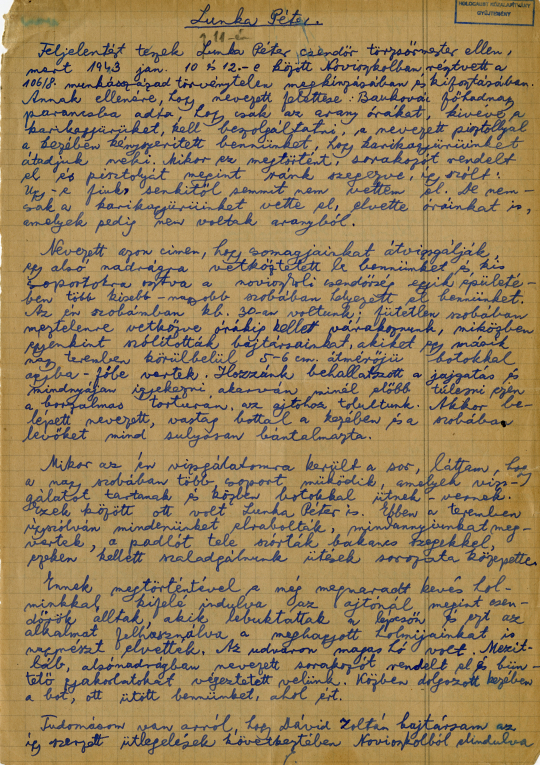 HOLOCAUST KÖZALAPÍTVÁNY
GYŰJTEMÉNY
Lunka Péter.
Feljelentést teszek Lunka Péter csendőr törzsőrmester ellen,
mert 1943 jan. 10 és 12.-e között Noviosskolban résztvett a
106/8. munkásszázad törvénytelen megkinzásában és kifosztásában.
Annak ellenére, hogy nevezett felettese: főhadnagy
parancsba adta, hogy csak az arany órákat, kivéve a
karikagyűrüket, kell beszolgáltatni, a nevezett pisztollyal
a kezében kényszeritett bennünket, hogy karikagyűrüinket
átadjuk neki. Mikor ez megtörtént, sorakozót rendelt
el és pisztolyát megint ránk szegezve, igy szólt:
Ugy-e fiuk, senkitől semmit nem vettem el. De nem-
csak a karikagyűrüinket vette el, elvette óráinkat is,
amelyek pedig nem voltak aranyból.
Nevezett azon cimen, hogy csomagjainkat átvizsgálják
egy alsó nadrágra vetkőztetett le bennünket és kis
csoportokra osztva a csendőrség egyik épületé-
ben több kisebb-nagyobb szobában helyezett el bennünket.
Az én szobámban kb. 30-an voltunk; fütetlen szobában
meztelenre vetkőzve órákig kellett várakoznunk, miközben
egyenkint szólitották bajtársainkat, akiket egy másik
nagy teremben körülbelül 5-6 cm. átmérőjü botokkal
agyba-főbe vertek. Hozzánk behallatszott a jajgatás és
mindnyájan igyekezni akarván minél előbb tulesni ezen
a borzalmas torturán, az ajtóhoz tolultunk. Akkor be-
lépett nevezett, vastag bottal a kezében és a szobában
levőket mind sulyosan bántalmazta.
Mikor az én vizsgálatomra került a sor, láttam, hogy
a nagy szobában több csoport müködik, amelyek vizs-
gálatot tartanak és közben botokkal ütnek-vernek.
Ezek között ott volt Lunka Péter is. Ebben a teremben
ugyszólván mindenünket elrabolták, mindannyiunkat meg-
vertek, a padlót tele szórták bakancs szegekkel,
ezeken kellett szaladgálnunk ütések sorozata közepette.
Ennek megtörténtével a még megmaradt kevés hol-
minkkal kifelé indulva az ajtónál megint csen-
dőrök álltak, akik lebuktattak a lépcsőn és ezt az
alkalmat felhasználva a meghagyott holmijainkat is
nagyrészt elvették. Az udvaron magas hó volt. Mezit-
láb, alsónadrágban nevezett sorakozót rendelt el és bün-
tető gyakorlatokat végeztetett velünk. Közben dolgozott kezében
a bot, ott ütött bennünket, ahol ért.
Tudomásom van arról, hogy Dávid Zoltán bajtársam az
igy szerzett ütlegelések következtében Noviosskolból elindulva